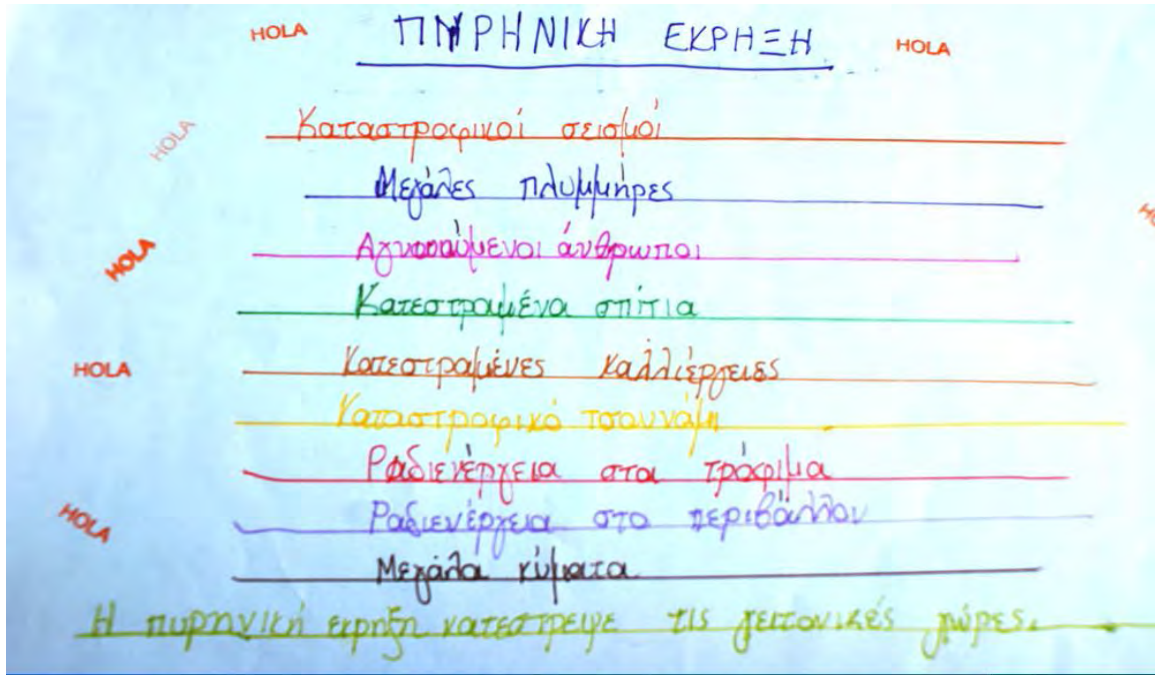 HOLA ΠΥΡΗΝΙΚΗ ΕΚΡΗΞΗ HOLA
HOLA
Καταστροφικοί σεισμοί
Μεγάλες πλυμμήρες
HO
Αγνοούμενοι άνθρωποι
HOLA
Κατεστραμένα σπίτια
Κατεστραμένες καλλιέργειες
HOLA
Καταστροφικό τσουνάμη
Ραδιενέργεια στα τρόφιμα
Ραδιενέργεια στο περιβάλλον
HOLA
Μεγάλα κύματα
Η πυρηνική εκρηξη κατεστρεψε τις γειτονικές χώρες.